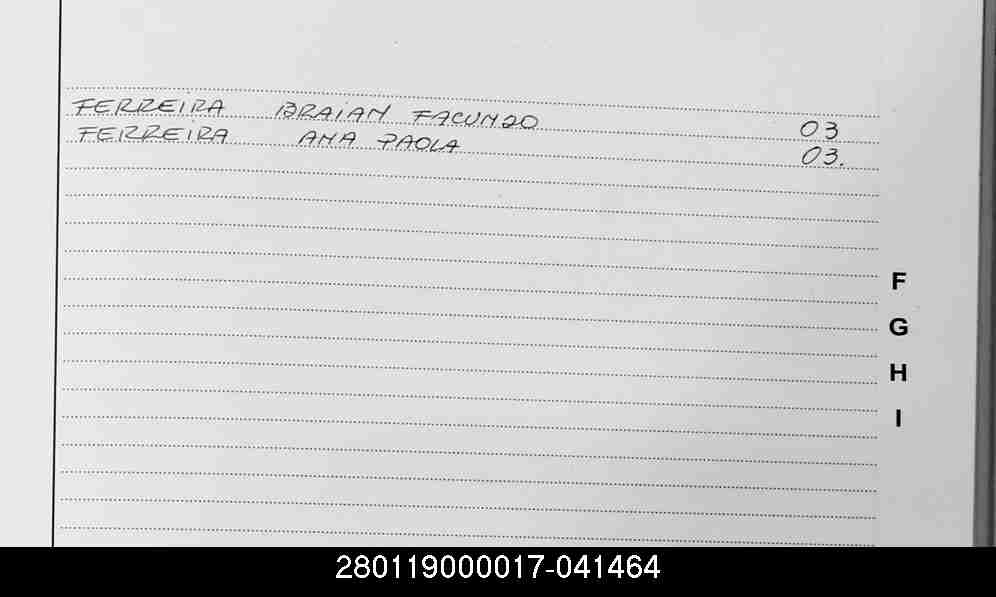 FERREIRA BRAIAN FACUNDO 03
FERREIRA ANA PAOLA 03.
F
G
H
I
280119000017-041464